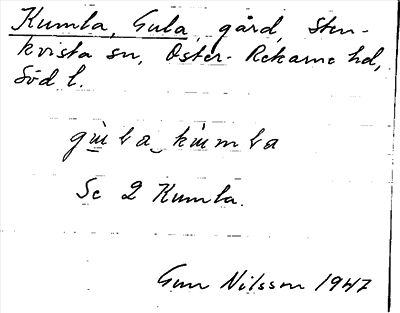 Kumla, Gula, gård, Sten-
kvista sn, Öster-Rekarne hd,
Söd l.
Se 2 Kumla.
Gun Nilsson 1947